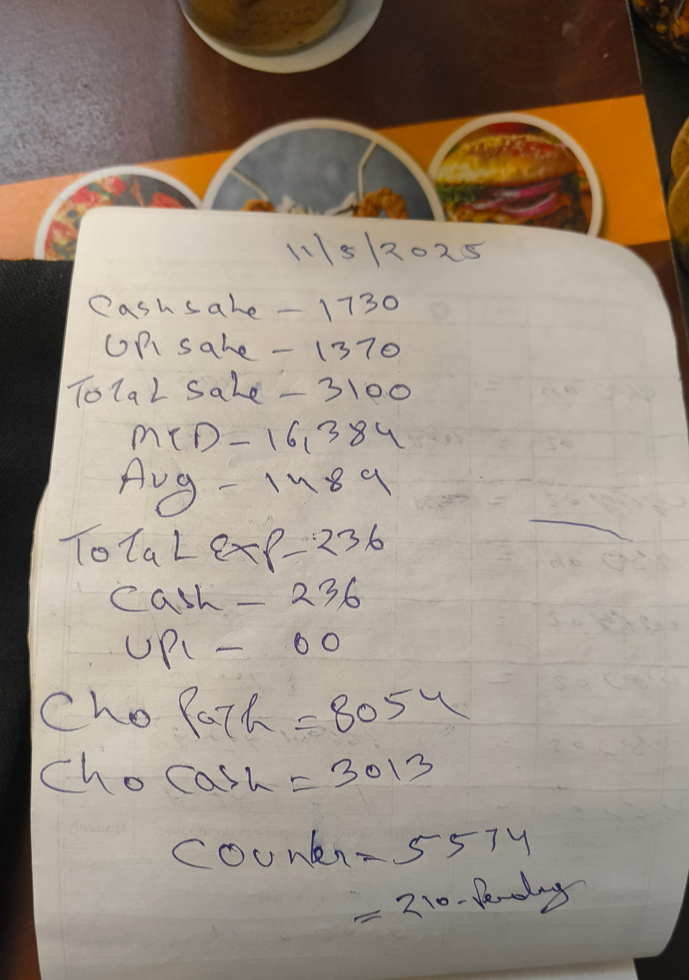 11/5/2025
Cash sale - 1730
UPI sale - 1370
Total Sale - 3100
MTD - 16,384
Avg - 1489
Total Exp - 236
Cash - 236
UPI - 00
Cho Path = 8054
Cho Cash = 3013
Counter = 5574
= 210 - Pending